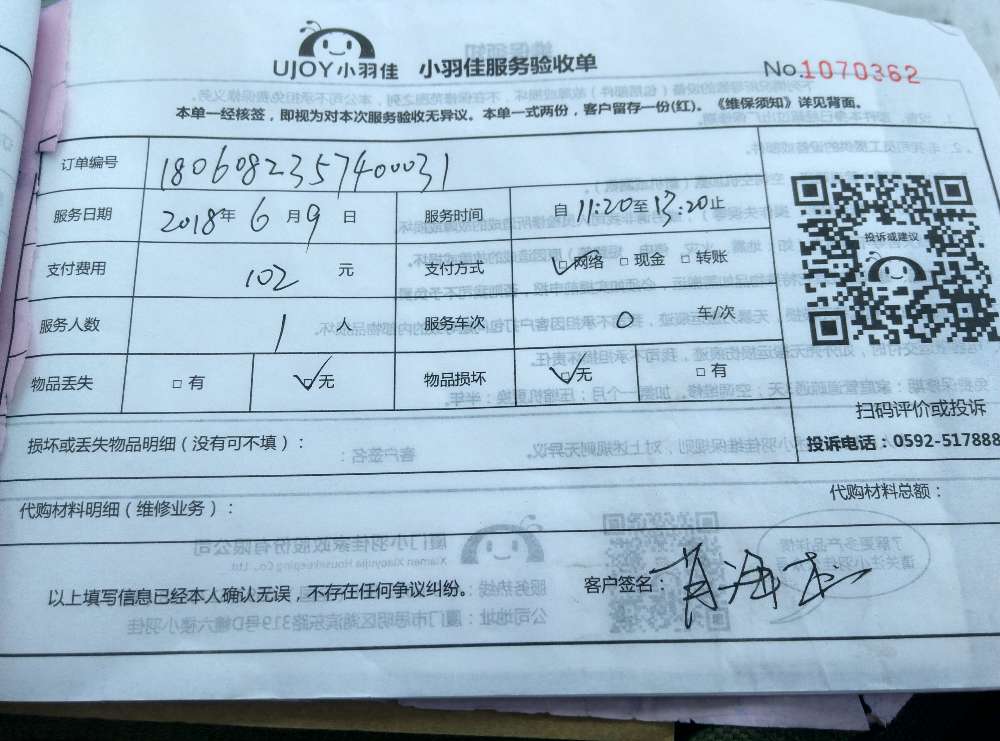 UJOY小羽佳 小羽佳服务验收单 No.1070362
本单一经核签，即视为对本次服务验收无异议。本单一式两份，客户留存一份(红)。《维保须知》详见背面。
订单编号 1806082357400031
服务日期 2018年 6 月 9 日 服务时间 自 11:20 至 13:20 止
投诉或建议
支付费用 102 元 支付方式 ☑网络 □现金 □转账
服务人数 1 人 服务车次 0 车/次
物品丢失 □有 ☑无 物品损坏 ☑无 □有
扫码评价或投诉
损坏或丢失物品明细（没有可不填）： 投诉电话：0592-517888
代购材料明细（维修业务）： 代购材料总额：
以上填写信息已经本人确认无误，不存在任何争议纠纷。 客户签名：